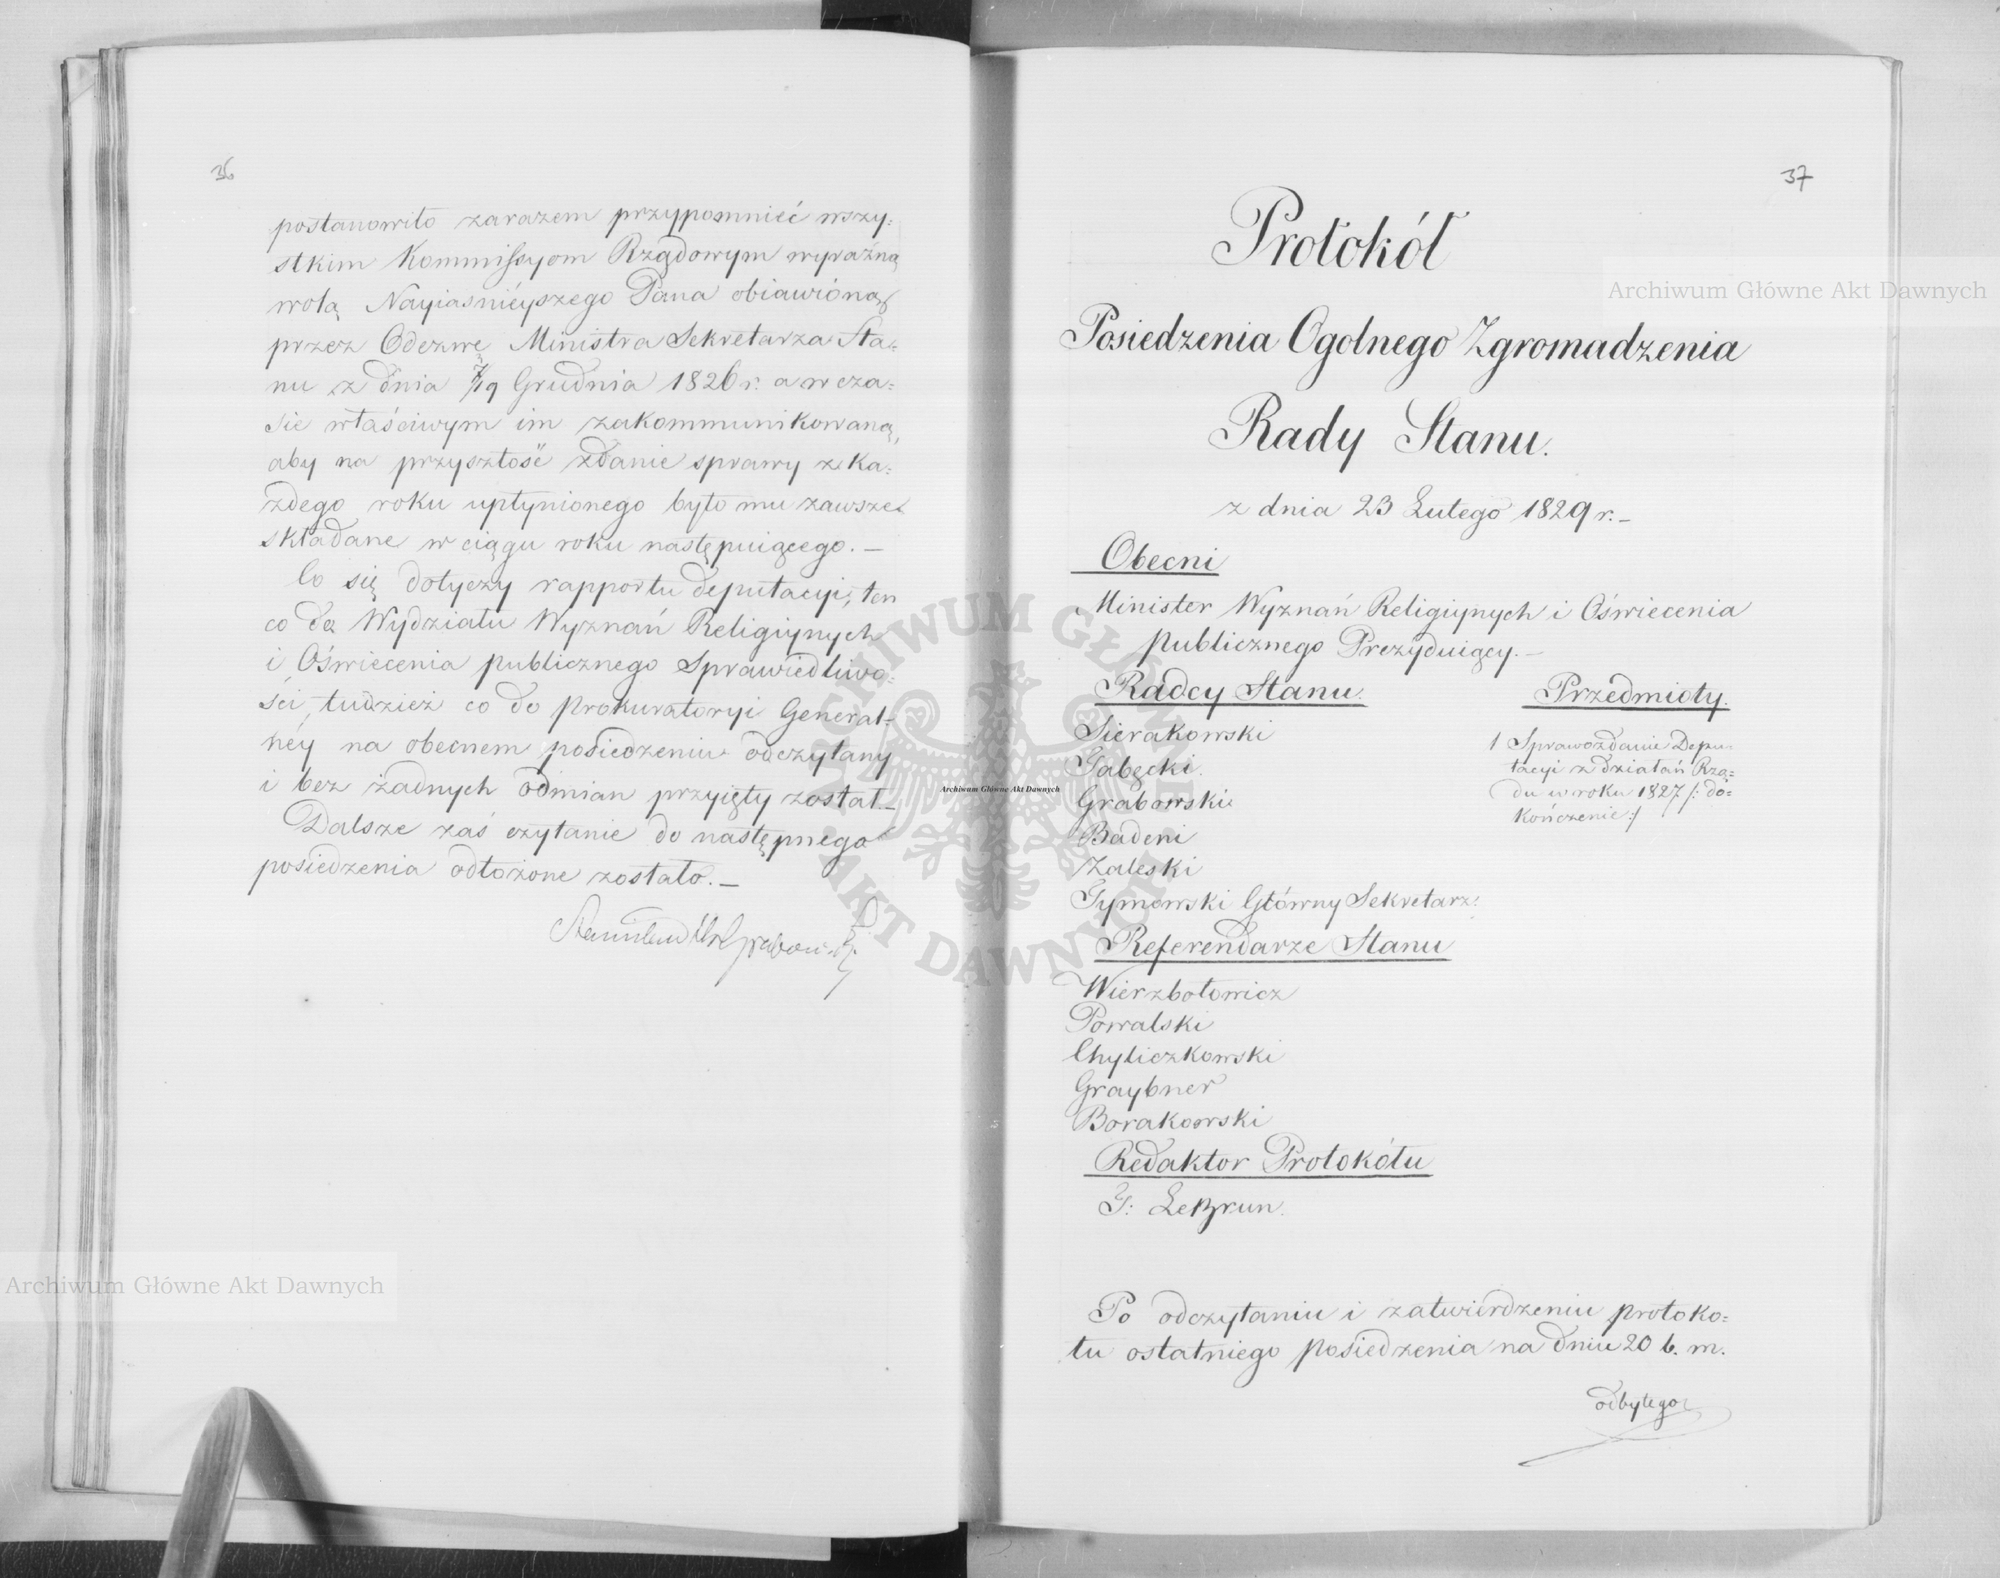 36
postanowiło zarazem przypomnieć wszy:
stkim Kommissyom Rządowym wyraźną
wolą Nayiaśnieyszego Pana obiawioną
przez Odezwę Ministra Sekretarza Sta:
nu z dnia 7/19 Grudnia 1826 r. a w cza:
sie właściwym im zakommunikowaną,
aby na przyszłość zdanie sprawy z ka:
żdego roku upłynionego było mu zawsze
składane w ciągu roku następuiącego. —
Co się dotyczy rapportu deputacyi, ten
co do Wydziału Wyznań Religiynych
i Oświecenia publicznego Sprawiedliwo:
ści, tudzież co do Prokuratoryi General:
ney na obecnem posiedzeniu odczytany
i bez żadnych odmian przyięty został_
Dalsze zaś czytanie do następnego
posiedzenia odłożone zostało. —
37
Protokół
Posiedzenia Ogolnego Zgromadzenia
Rady Stanu.
z dnia 23 Lutego 1829 r. —
Obecni
Minister Wyznań Religiynych i Oświecenia
publicznego Prezyduiący. —
Radcy Stanu.
Sierakowski
Gabęcki.
Grabowski
Badeni
Zaleski
Tymowski Główny Sekretarz.
Przedmioty.
1 Sprawozdanie Depu
tacyi z działań Rzą:
du w roku 1827 /: do:
kończenie :/
Referendarze Stanu
Wierzbołowicz
Powalski
Chyliczkowski
Graybner
Borakowski
Redaktor Protokółu
G: LeBrun.
Po odczytaniu i zatwierdzeniu protoko:
łu ostatniego posiedzenia na dniu 20 b. m.
odbytego
Archiwum Główne Akt Dawnych
Archiwum Główne Akt Dawnych
Archiwum Główne Akt Dawnych
ARCHIWUM GŁÓWNE AKT DAWNYCH